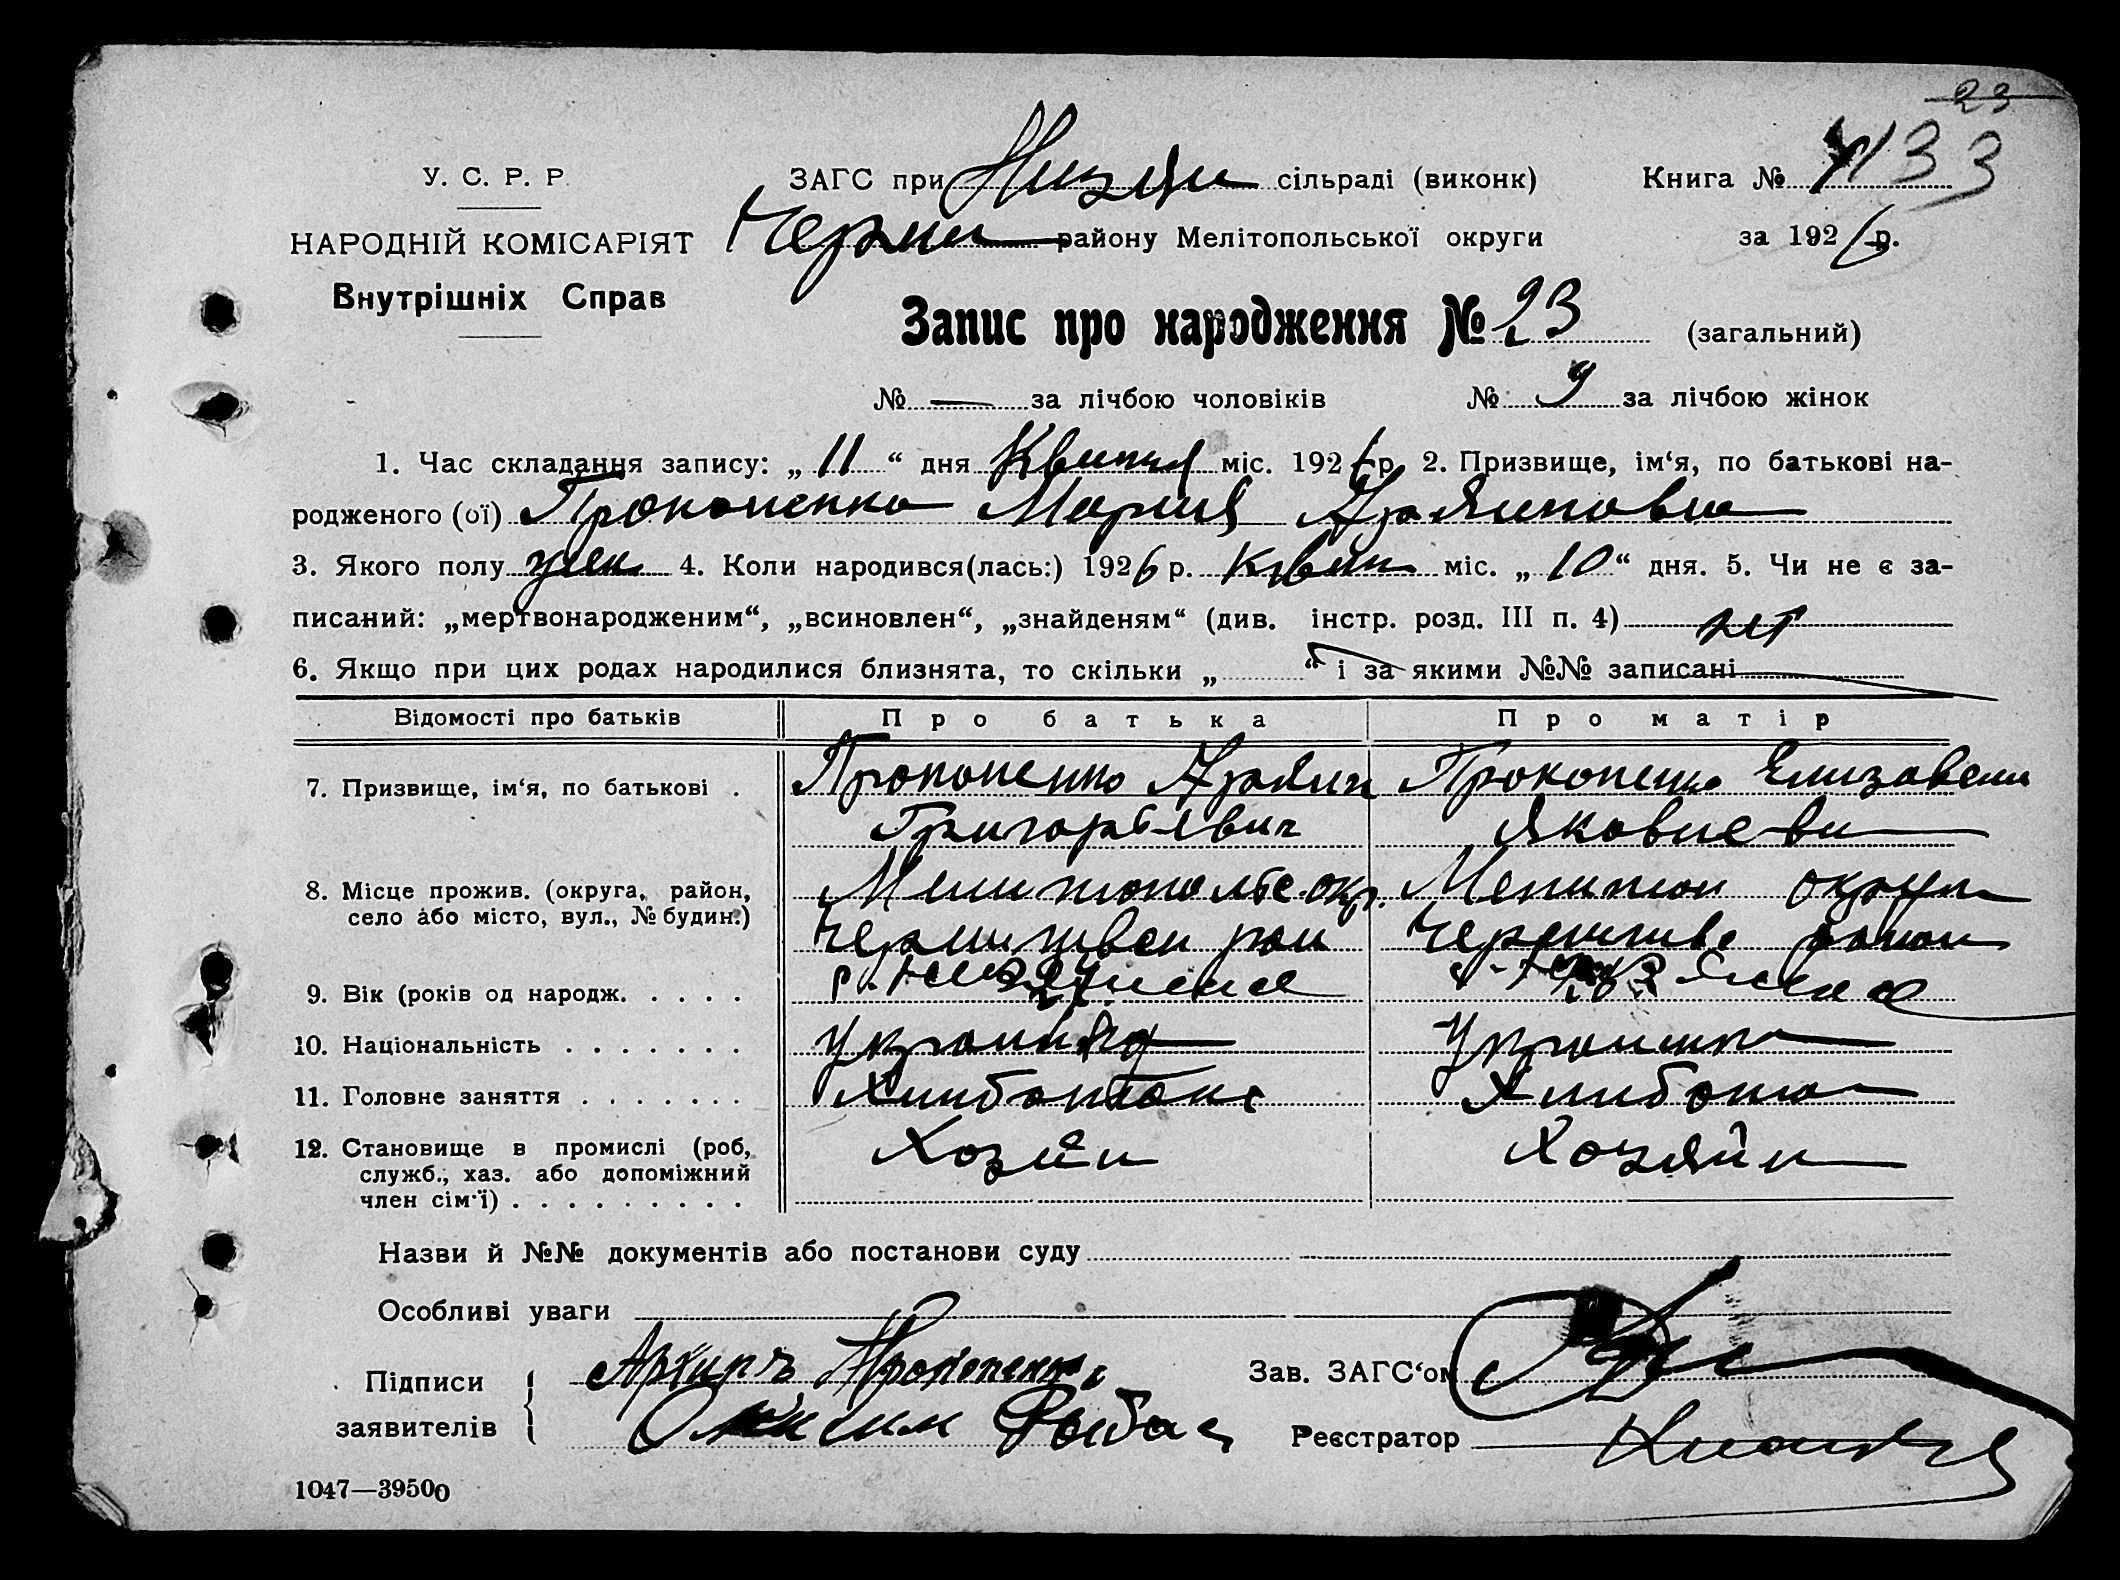 23
У. С. Р. Р.
ЗАГС при Низян сільраді (виконк)
Книга № 133
НАРОДНІЙ КОМІСАРІЯТ
Черни району Мелітопольської округи
за 1926 р.
Внутрішніх Справ
Запис про народження № 23 (загальний)
№ — за лічбою чоловіків
№ 9 за лічбою жінок
1. Час складання запису: „ 11 “ дня Квитня міс. 1926 р. 2. Призвище, ім‘я, по батькові на-
родженого (ої) Прокопенко Мария
3. Якого полу жен 4. Коли народився(лась:) 1926 р. Квит міс. „ 10 “ дня. 5. Чи не є за-
писаний: „мертвонародженим“, „всиновлен“, „знайденям“ (див. інстр. розд. III п. 4) нет
6. Якщо при цих родах народилися близнята, то скільки „ “ і за якими №№ записані
Відомості про батьків
Про батька
Про матір
7. Призвище, ім‘я, по батькові .
Прокопенко
Прокопенко Елизавета
Григорьевич
Яковлевн
8. Місце прожив. (округа, район,
село або місто, вул., № будин.)
Мелитопольс. окр.
Мелитоп округ
район
9. Вік (років од народж. . . . .
10. Національність . . . . . . .
11. Головне заняття . . . . . . .
Хлибопаш
12. Становище в промислі (роб,
служб., хаз. або допоміжний
член сім‘ї) . . . . . . . . .
Хозяин
Хозяйн
Назви й №№ документів або постанови суду
Особливі уваги
Підписи
заявителів
Архипъ Прокопенко
Зав. ЗАГС‘ом
Реєстратор
1047—39500